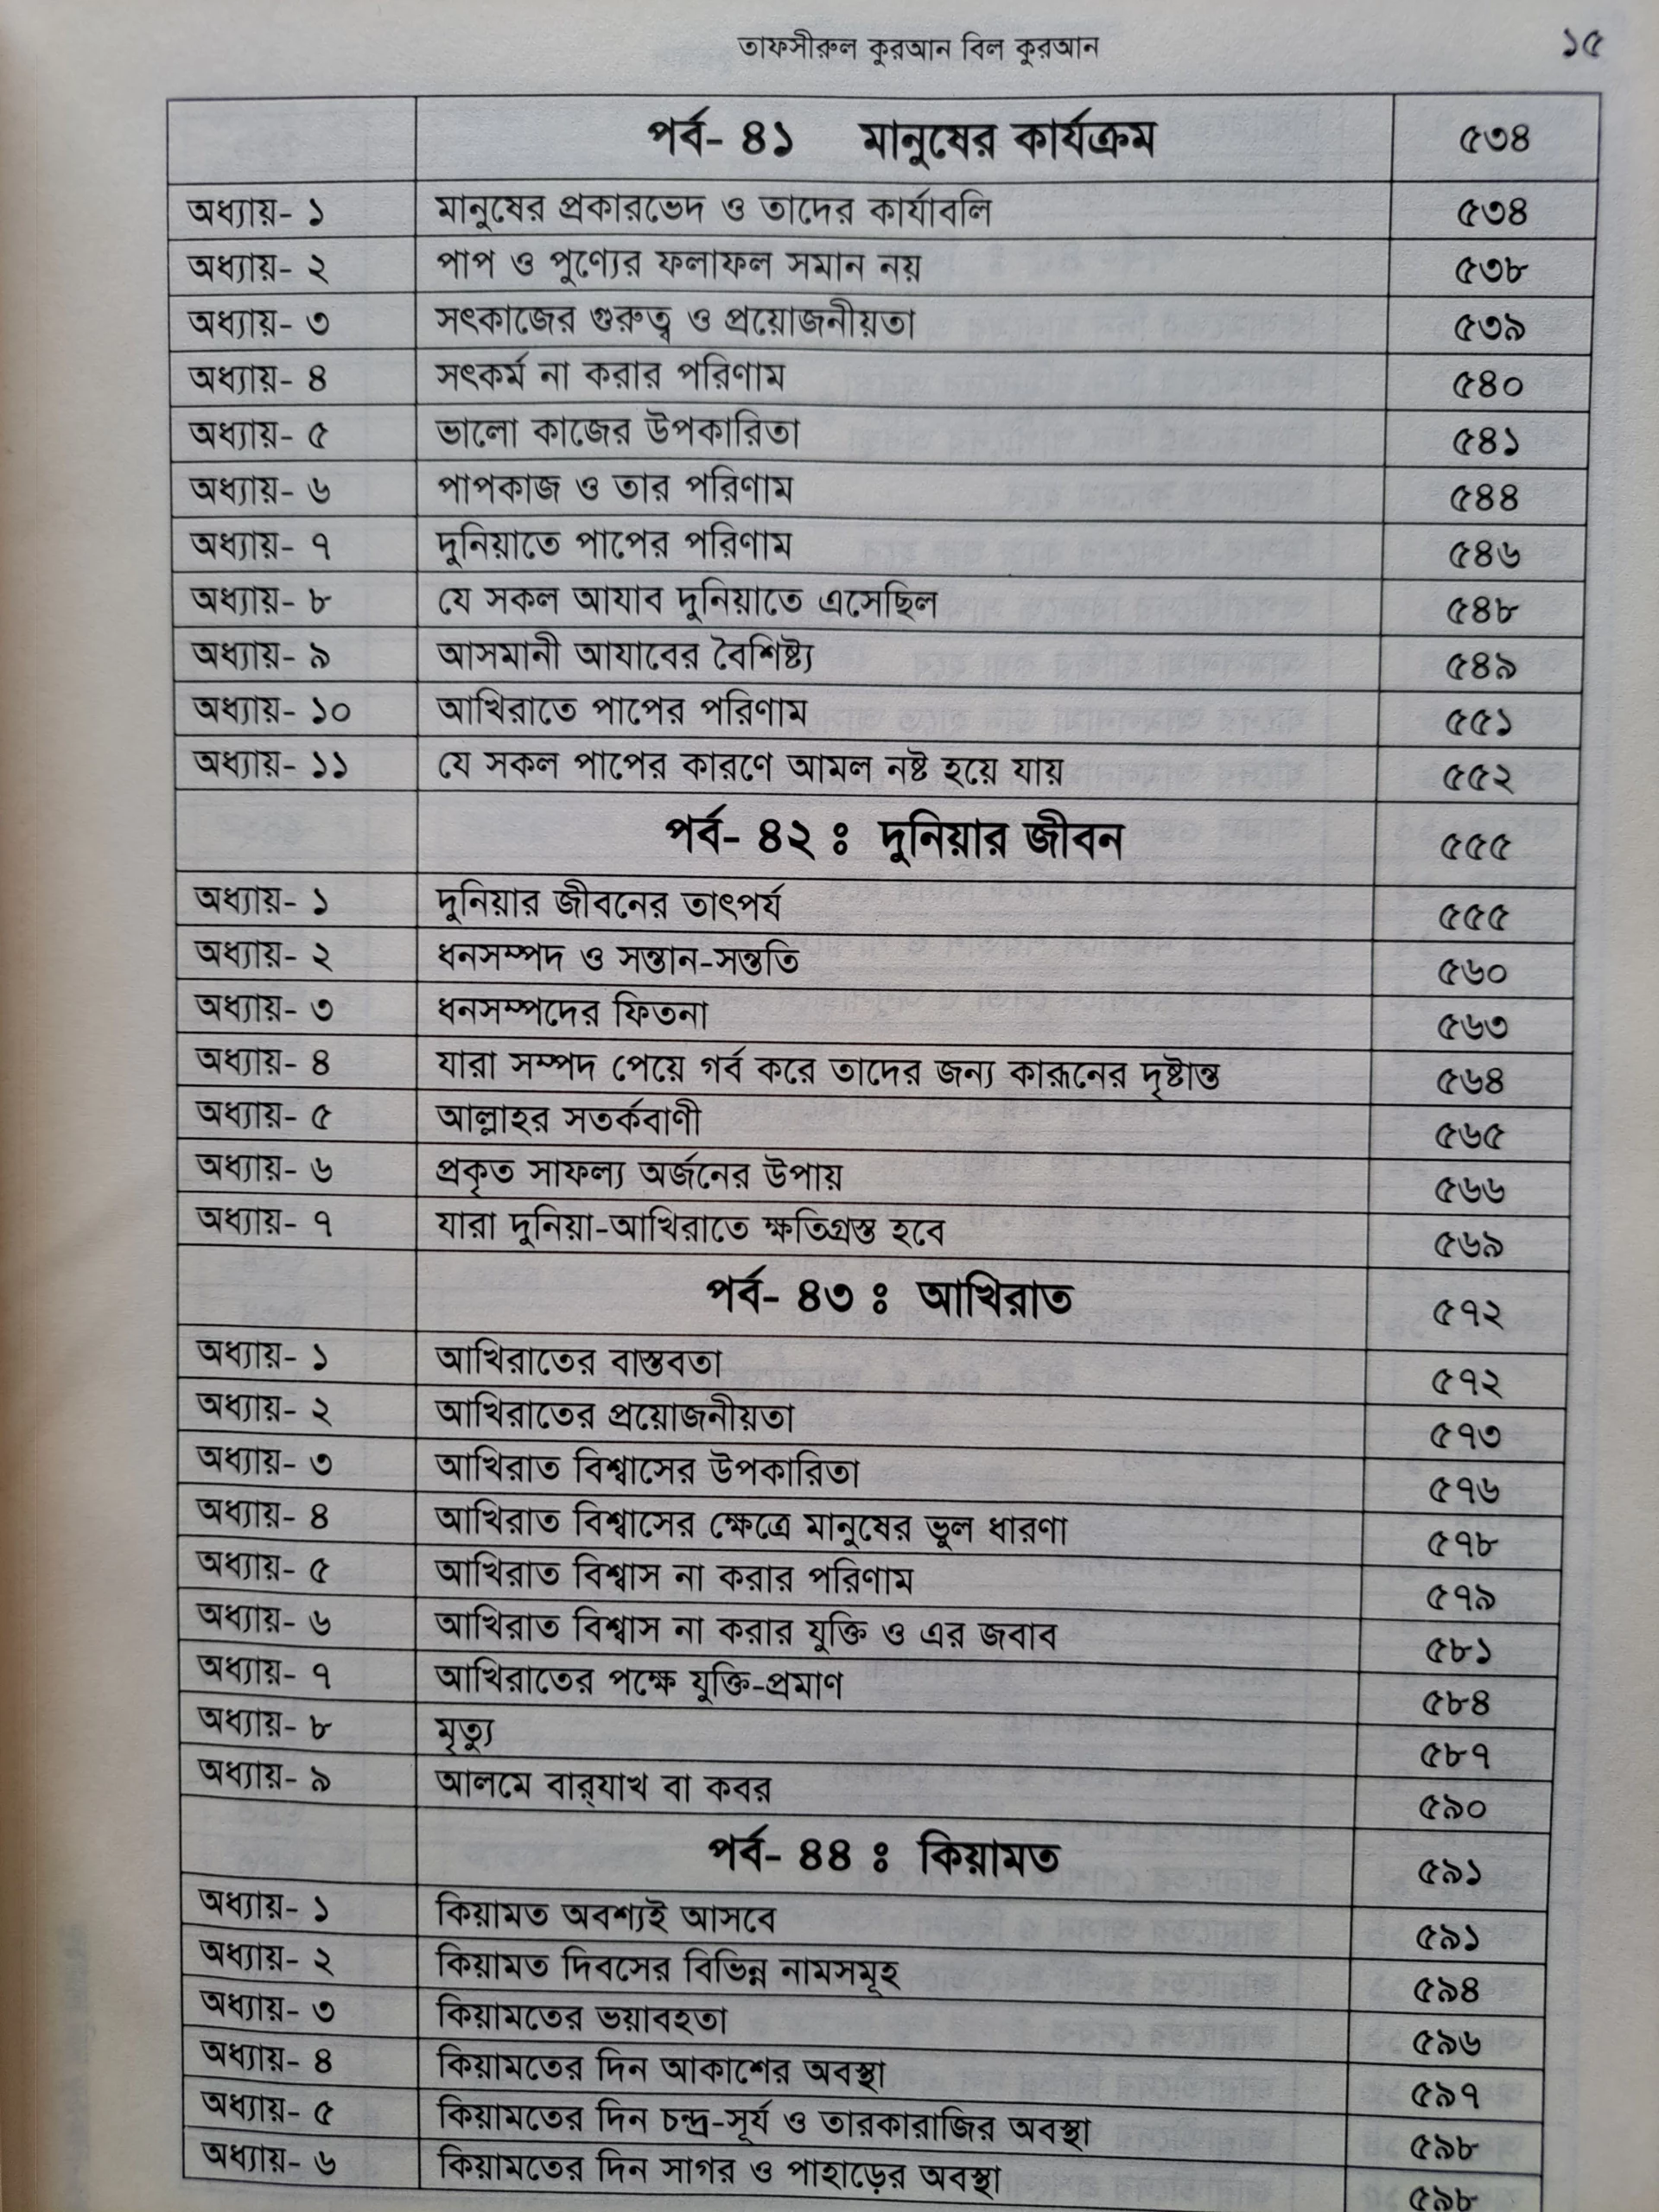 তাফসীরুল কুরআন বিল কুরআন ১৫
পর্ব- ৪১ মানুষের কার্যক্রম ৫৩৪
অধ্যায়- ১ মানুষের প্রকারভেদ ও তাদের কার্যাবলি ৫৩৪
অধ্যায়- ২ পাপ ও পুণ্যের ফলাফল সমান নয় ৫৩৮
অধ্যায়- ৩ সৎকাজের গুরুত্ব ও প্রয়োজনীয়তা ৫৩৯
অধ্যায়- ৪ সৎকর্ম না করার পরিণাম ৫৪০
অধ্যায়- ৫ ভালো কাজের উপকারিতা ৫৪১
অধ্যায়- ৬ পাপকাজ ও তার পরিণাম ৫৪৪
অধ্যায়- ৭ দুনিয়াতে পাপের পরিণাম ৫৪৬
অধ্যায়- ৮ যে সকল আযাব দুনিয়াতে এসেছিল ৫৪৮
অধ্যায়- ৯ আসমানী আযাবের বৈশিষ্ট্য ৫৪৯
অধ্যায়- ১০ আখিরাতে পাপের পরিণাম ৫৫১
অধ্যায়- ১১ যে সকল পাপের কারণে আমল নষ্ট হয়ে যায় ৫৫২
পর্ব- ৪২ ঃ দুনিয়ার জীবন ৫৫৫
অধ্যায়- ১ দুনিয়ার জীবনের তাৎপর্য ৫৫৫
অধ্যায়- ২ ধনসম্পদ ও সন্তান-সন্ততি ৫৬০
অধ্যায়- ৩ ধনসম্পদের ফিতনা ৫৬৩
অধ্যায়- ৪ যারা সম্পদ পেয়ে গর্ব করে তাদের জন্য কারূনের দৃষ্টান্ত ৫৬৪
অধ্যায়- ৫ আল্লাহর সতর্কবাণী ৫৬৫
অধ্যায়- ৬ প্রকৃত সাফল্য অর্জনের উপায় ৫৬৬
অধ্যায়- ৭ যারা দুনিয়া-আখিরাতে ক্ষতিগ্রস্ত হবে ৫৬৯
পর্ব- ৪৩ ঃ আখিরাত ৫৭২
অধ্যায়- ১ আখিরাতের বাস্তবতা ৫৭২
অধ্যায়- ২ আখিরাতের প্রয়োজনীয়তা ৫৭৩
অধ্যায়- ৩ আখিরাত বিশ্বাসের উপকারিতা ৫৭৬
অধ্যায়- ৪ আখিরাত বিশ্বাসের ক্ষেত্রে মানুষের ভুল ধারণা ৫৭৮
অধ্যায়- ৫ আখিরাত বিশ্বাস না করার পরিণাম ৫৭৯
অধ্যায়- ৬ আখিরাত বিশ্বাস না করার যুক্তি ও এর জবাব ৫৮১
অধ্যায়- ৭ আখিরাতের পক্ষে যুক্তি-প্রমাণ ৫৮৪
অধ্যায়- ৮ মৃত্যু ৫৮৭
অধ্যায়- ৯ আলমে বার্‌যাখ বা কবর ৫৯০
পর্ব- ৪৪ ঃ কিয়ামত ৫৯১
অধ্যায়- ১ কিয়ামত অবশ্যই আসবে ৫৯১
অধ্যায়- ২ কিয়ামত দিবসের বিভিন্ন নামসমূহ ৫৯৪
অধ্যায়- ৩ কিয়ামতের ভয়াবহতা ৫৯৬
অধ্যায়- ৪ কিয়ামতের দিন আকাশের অবস্থা ৫৯৭
অধ্যায়- ৫ কিয়ামতের দিন চন্দ্র-সূর্য ও তারকারাজির অবস্থা ৫৯৮
অধ্যায়- ৬ কিয়ামতের দিন সাগর ও পাহাড়ের অবস্থা ৫৯৮